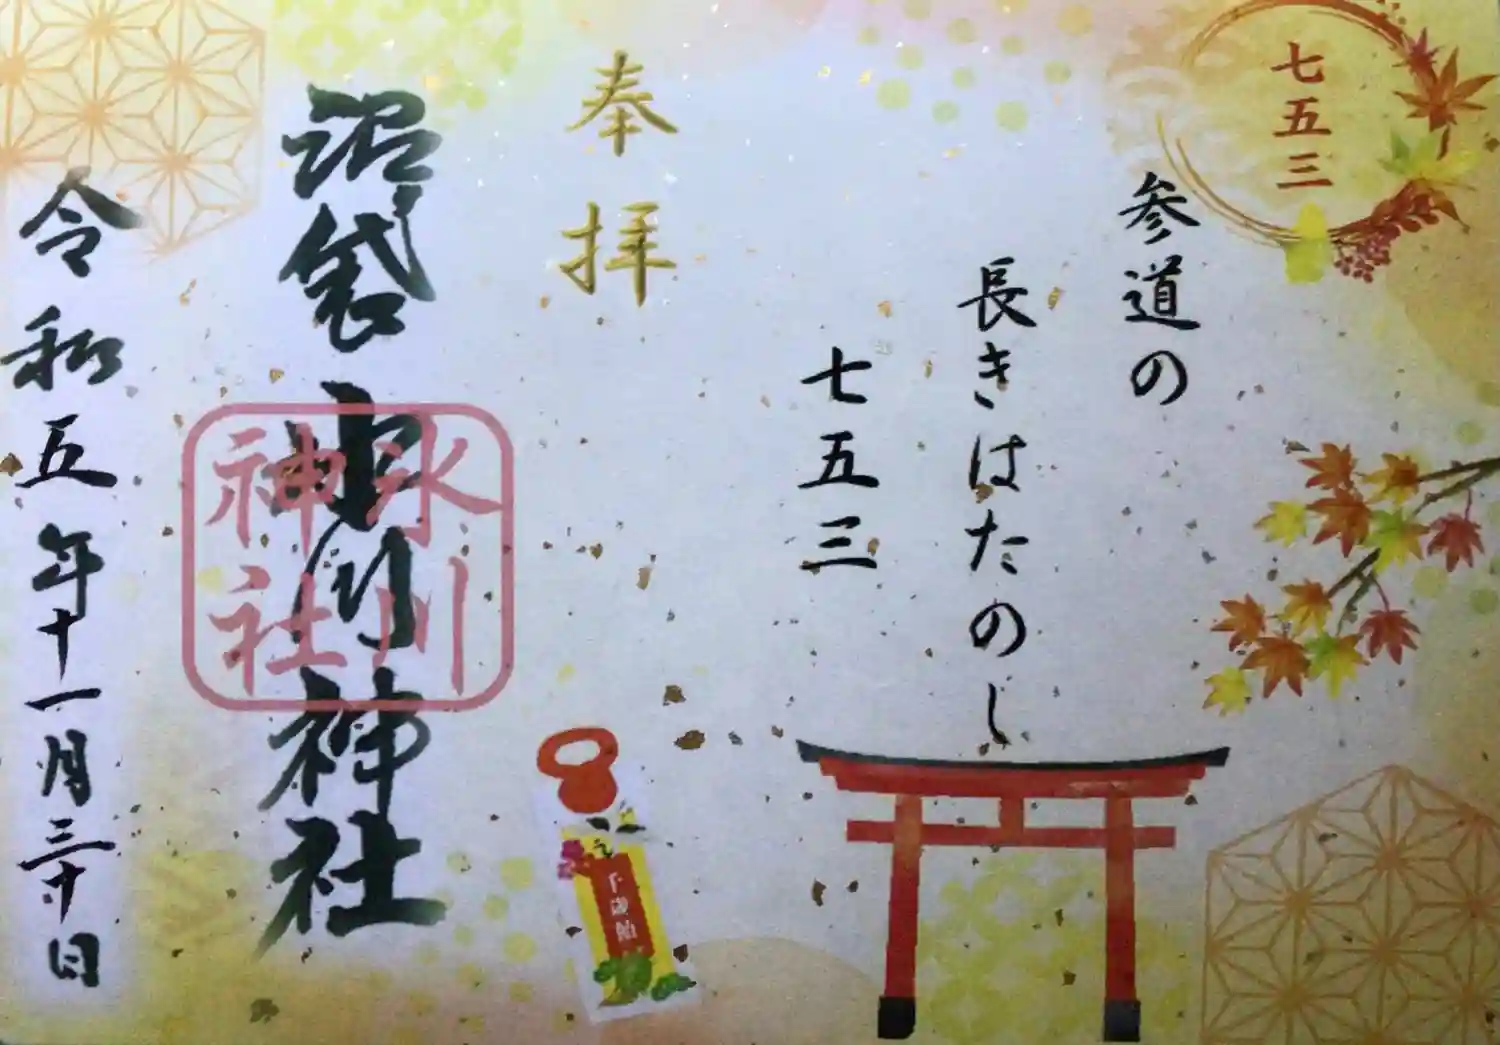 七五三
参道の
長きはたのし
七五三
奉拝
沼袋氷川神社
氷川神社
令和五年十一月三十日
千歳飴